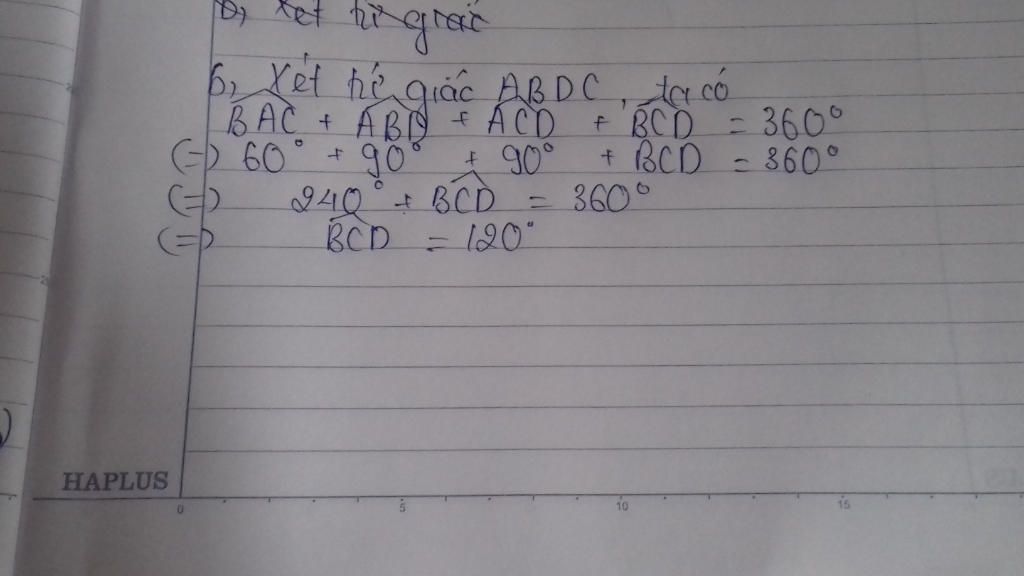 b, Xét tứ giác
b, Xét tứ giác ABDC, ta có
BAC + ABD + ACD + BCD = 360°
(=) 60° + 90° + 90° + BCD = 360°
(=) 240° + BCD = 360°
(=) BCD = 120°
)
HAPLUS
0 5 10 15